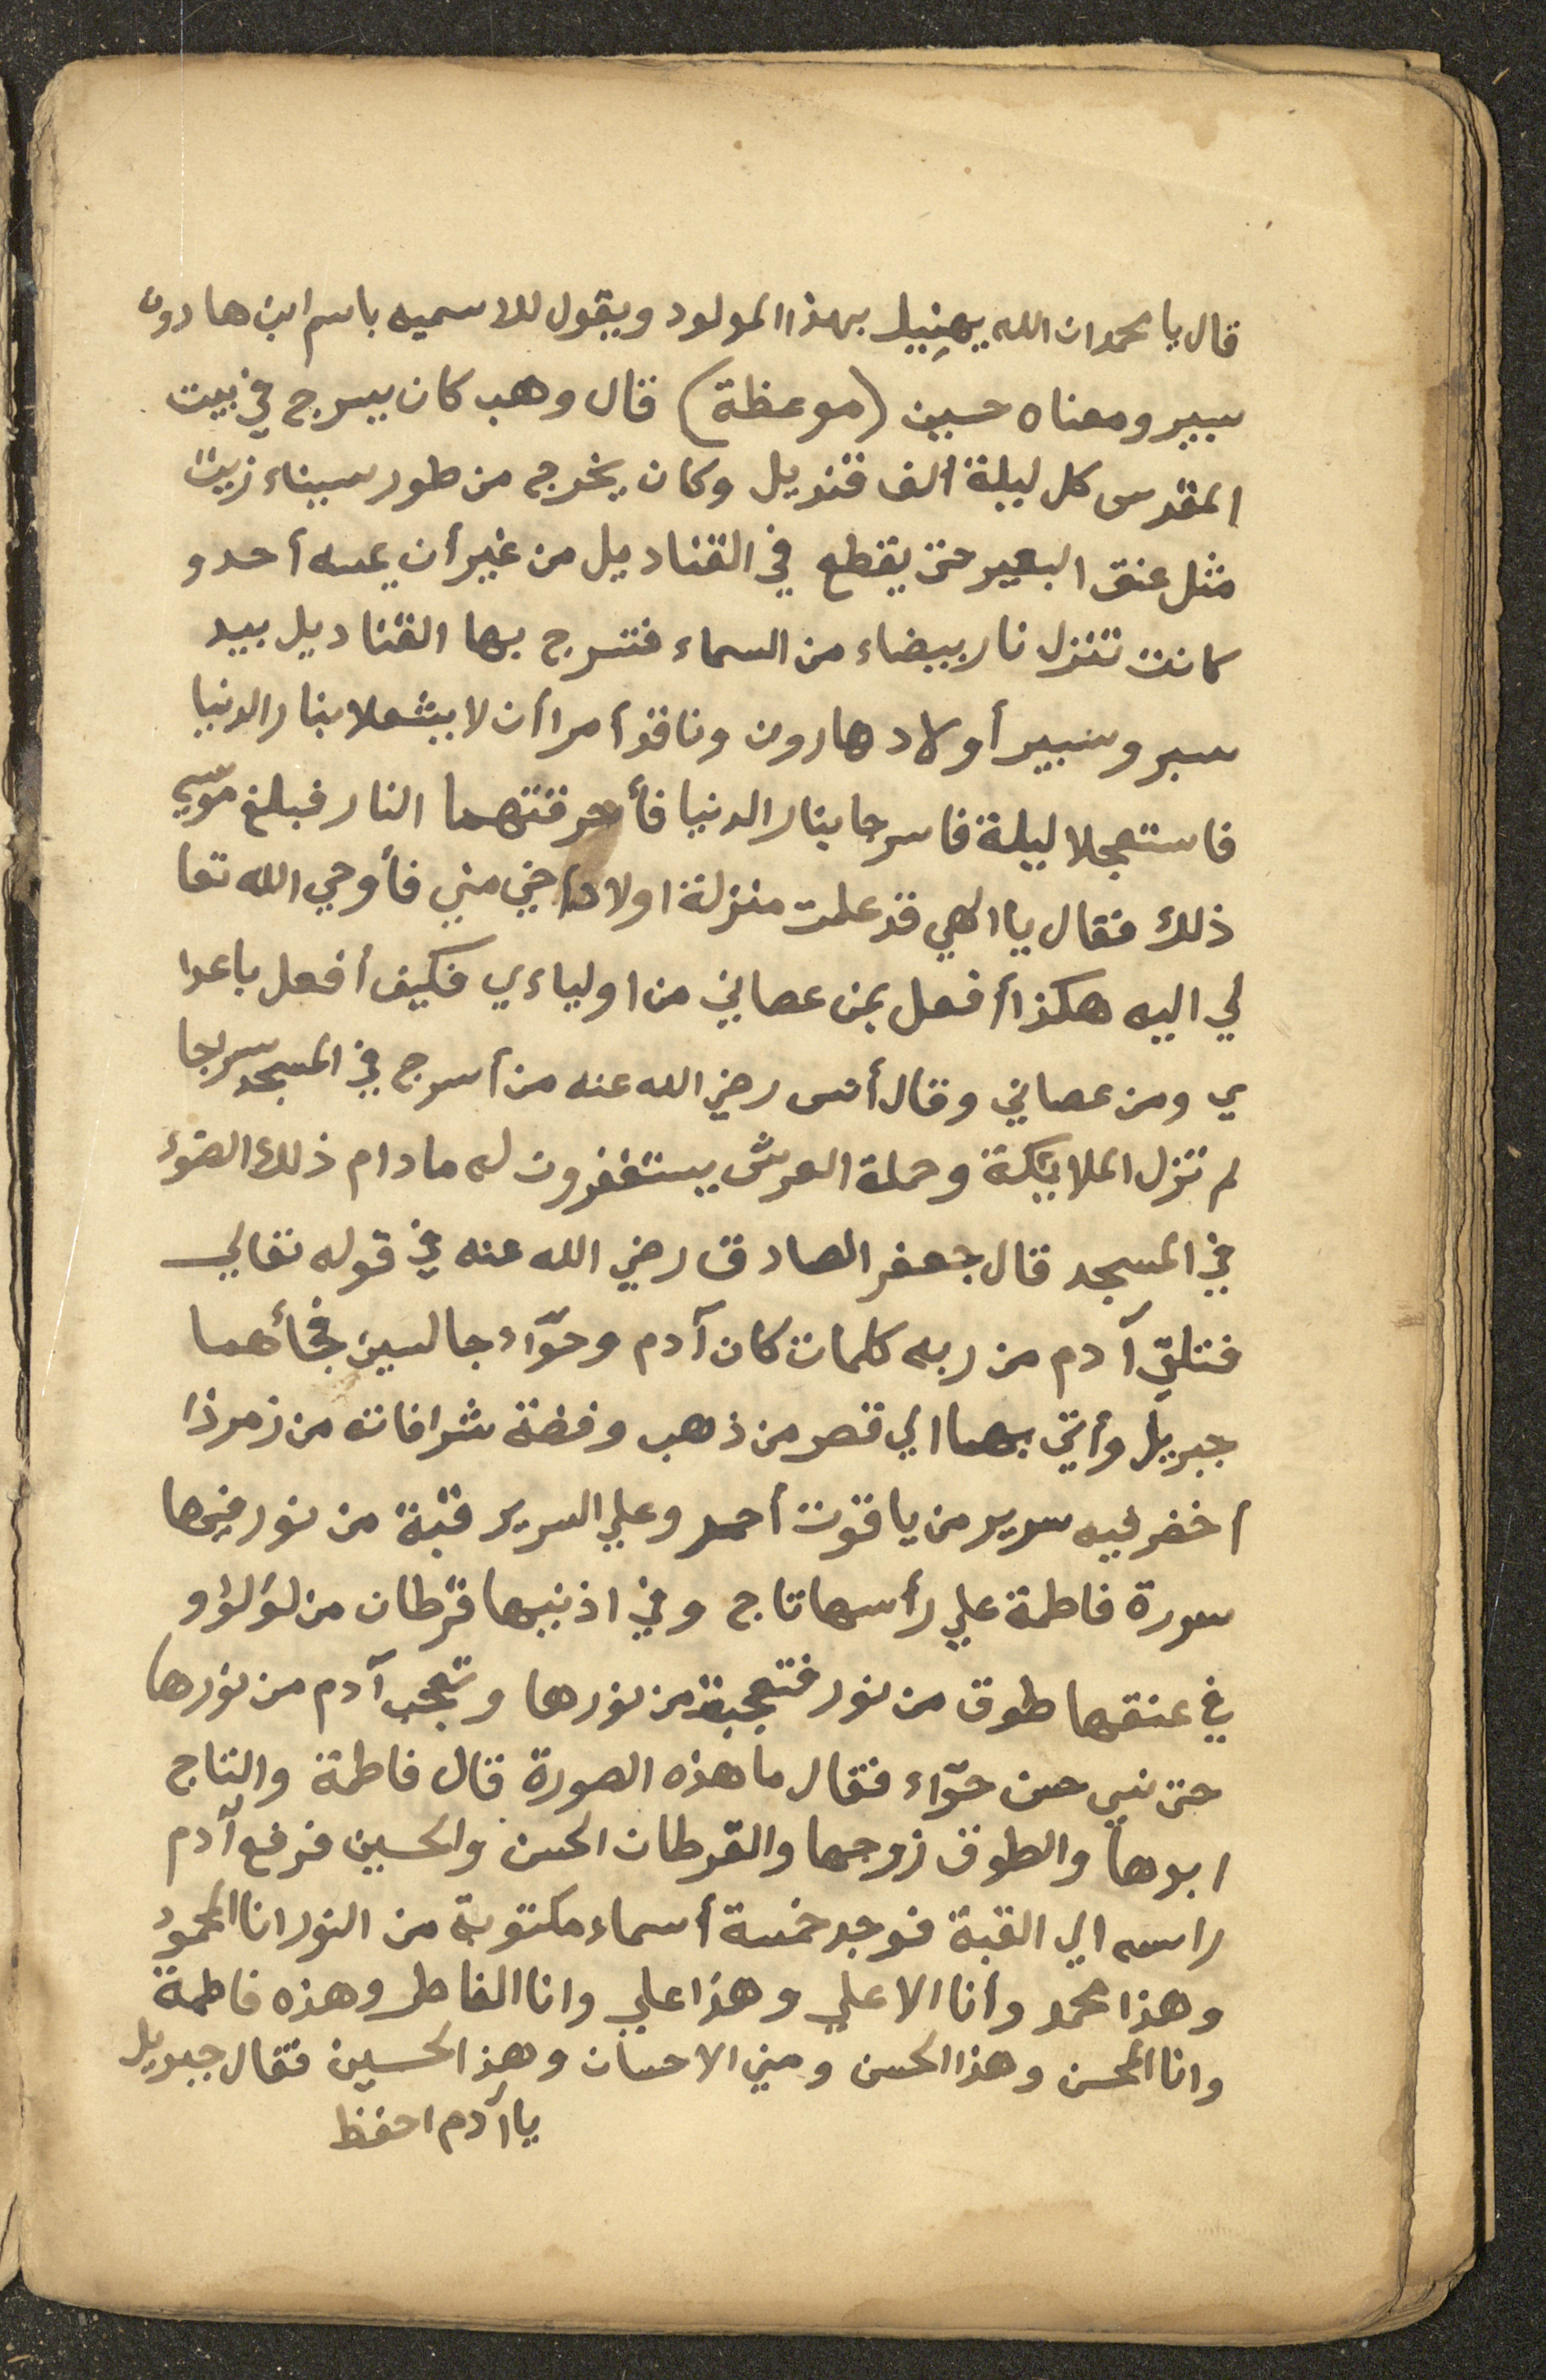 قال يا محمد ان الله يهنيك بهذا المولود ويقول لك سميه باسم ابن هارون
سبير ومعناه حسين (موعظة) قال وهب كان يسرج في بيت
المقدس كل ليلة ألف قنديل وكان يخرج من طور سيناء زيت
مثل عنق البعير حتى يقطع في القناديل من غير أن يمسه أحد و
كانت تنزل نار بيضاء من السماء فتسرج بها القناديل بيد
سبر وسبير أولاد هارون وناقد أمرا أن لا يشعلا بنار الدنيا
فاستعجلا ليلة فاسرجا بنار الدنيا فأحرقتهما النار فبلغ موسي
ذلك فقال يا الهي قد علمت منزلة اولاد اخي مني فأوحي الله تعا
لي اليه هكذا أفعل بمن عصاني من اولياءي فكيف أفعل باعدا
ي ومن عصاني وقال أنس رضي الله عنه من أسرج في المسجد سرجا
لم تزل الملايكة وحملة العرش يستغفرون له ما دام ذلك الضوء
في المسجد قال جعفر الصادق رضي الله عنه في قوله تعالي
فتلقي آدم من ربه كلمات كان آدم وحوّاء جالسين فجأهما
جبريل وأتي بهما الي قصر من ذهب وفضة شرافاته من زمرذا
أخضر فيه سرير من ياقوت أحمر وعلي السرير قبة من نور فيها
سورة فاطمة علي رأسها تاج وفي اذنيها قرطان من لؤلؤ و
في عنقها طوق من نور فتعجبة من نورها وتعجب آدم من نورها
حتى نسي حسن حوّاء فقال ما هذه الصورة قال فاطمة والتاج
ابوها والطوق زوجها والقرطان الحسن والحسين فرفع آدم
راسه الي القبة فوجد خمسة أسماء مكتوبة من النور انا المحمود
وهذا محمد وأنا الاعلي وهذا علي وانا الفاطر وهذه فاطمة
وانا المحسن وهذا الحسن ومني الاحسان وهذ الحسين فقال جبريل
يا آدم احفظ